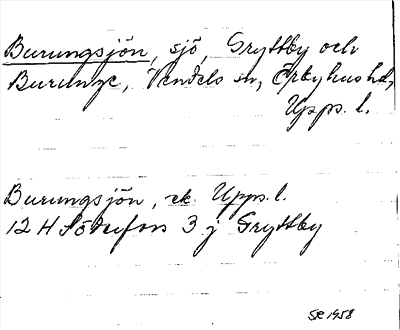 Burungsjön, sjö, Gryttby och
Burunge, Vendels sn, Örbyhus hd,
Upps. l.
Burungsjön, ek. Upps. l.
12 H Söderfors 3 j Gryttby
SR 1958